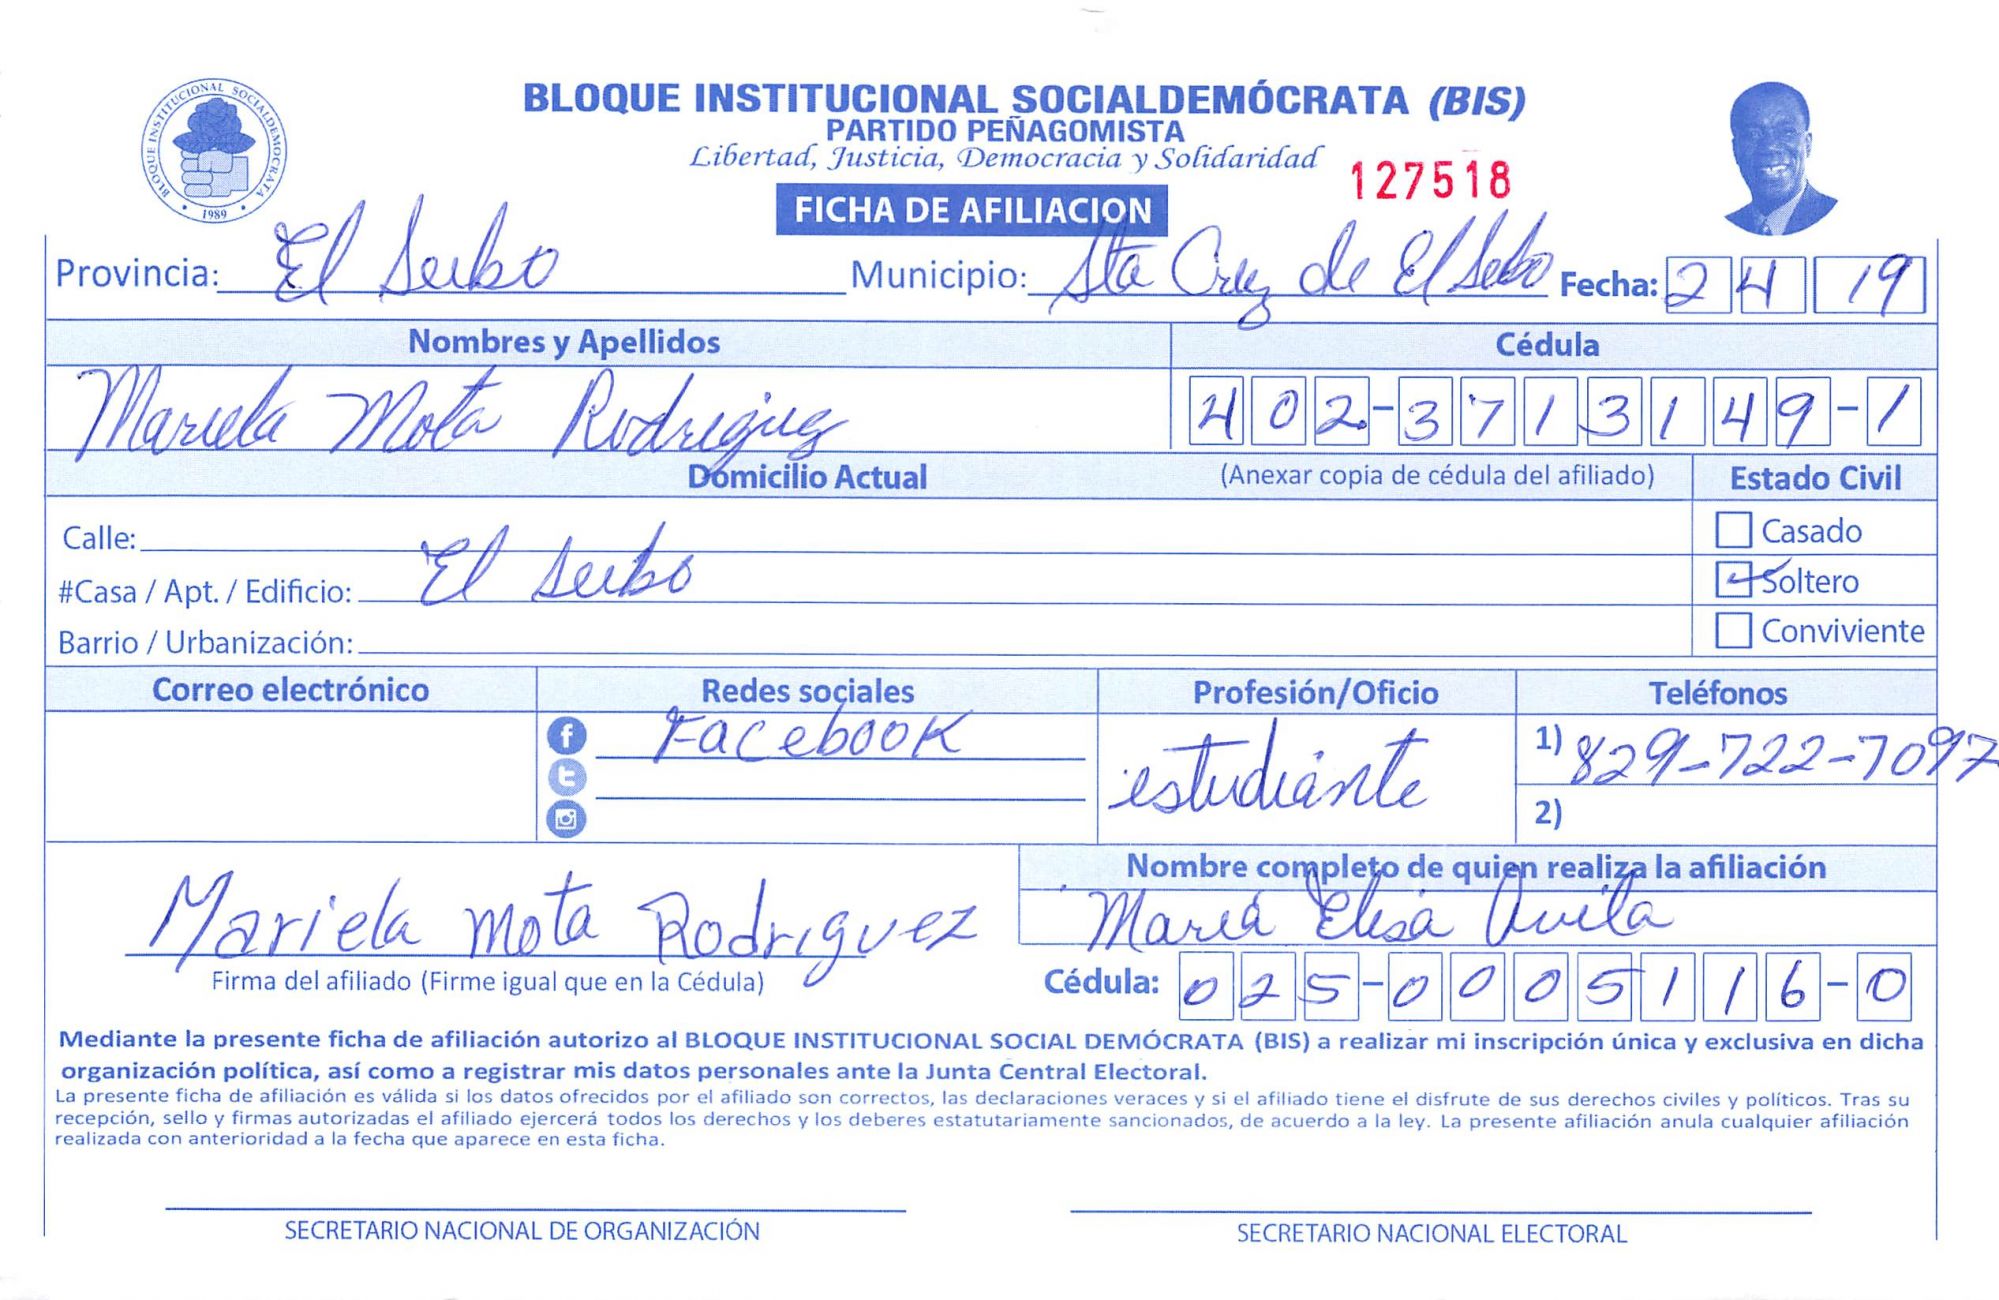 BLOQUE INSTITUCIONAL SOCIALDEMOCRATA
1989
BLOQUE INSTITUCIONAL SOCIALDEMÓCRATA (BIS)
PARTIDO PEÑAGOMISTA
Libertad, Justicia, Democracia y Solidaridad
127518
FICHA DE AFILIACION
Provincia: El Seibo Municipio: Sta Cruz de El Seibo Fecha: 2 4 19
Nombres y Apellidos Cédula
Mariela Mota Rodriguez 402-3713149-1
Domicilio Actual (Anexar copia de cédula del afiliado) Estado Civil
Calle: Casado
#Casa / Apt. / Edificio: El Seibo Soltero
Barrio / Urbanización: Conviviente
Correo electrónico Redes sociales Profesión/Oficio Teléfonos
Facebook estudiante 1) 829-722-7097
2)
Nombre completo de quien realiza la afiliación
Mariela Mota Rodriguez Maria Elisa Avila
Firma del afiliado (Firme igual que en la Cédula) Cédula: 025-0005116-0
Mediante la presente ficha de afiliación autorizo al BLOQUE INSTITUCIONAL SOCIAL DEMÓCRATA (BIS) a realizar mi inscripción única y exclusiva en dicha
organización política, así como a registrar mis datos personales ante la Junta Central Electoral.
La presente ficha de afiliación es válida si los datos ofrecidos por el afiliado son correctos, las declaraciones veraces y si el afiliado tiene el disfrute de sus derechos civiles y políticos. Tras su
recepción, sello y firmas autorizadas el afiliado ejercerá todos los derechos y los deberes estatutariamente sancionados, de acuerdo a la ley. La presente afiliación anula cualquier afiliación
realizada con anterioridad a la fecha que aparece en esta ficha.
SECRETARIO NACIONAL DE ORGANIZACIÓN SECRETARIO NACIONAL ELECTORAL